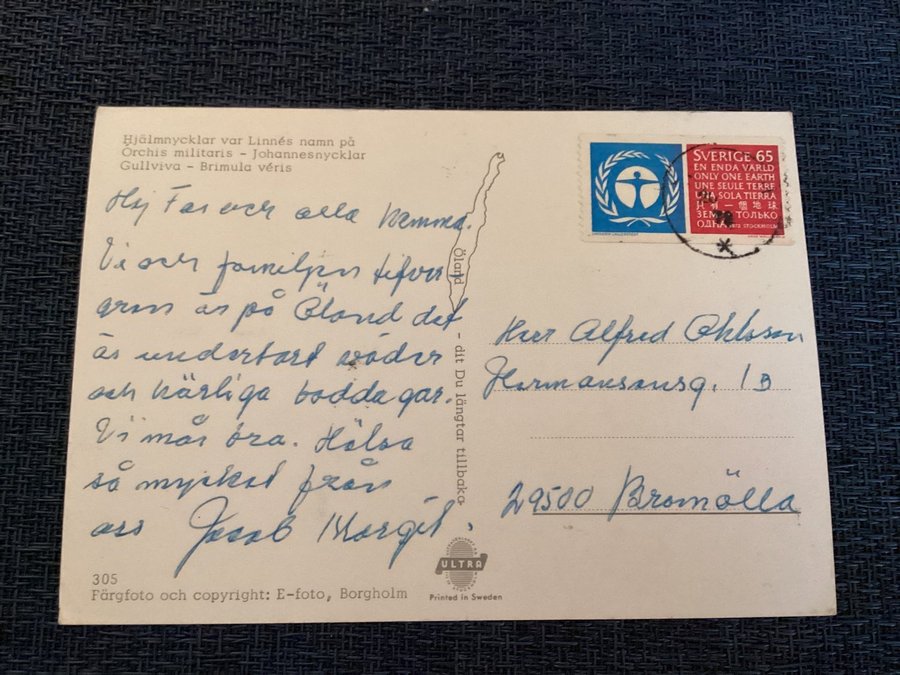 Hjälmnycklar var Linnés namn på
Orchis militaris - Johannesnycklar
Gullviva - Brimula véris
Hej Far och alla hemma.
Vi och familjen
är på Öland det
är underbart väder
och härliga baddagar.
Vi mår bra. Hälsa
så mycket från
oss Jacob Margit.
305
Färgfoto och copyright: E-foto, Borgholm
Öland - dit Du längtar tillbaka
ULTRA
Printed in Sweden
SVERIGE 65
EN ENDA VÄRLD
ONLY ONE EARTH
UNE SEULE TERRE
UNA SOLA TIERRA
只有一個地球
ТОЛЬКО
ОДНА
STOCKHOLM
72
Herr Alfred Ohlsson
Hermansonsg. 1B
29500 Bromölla